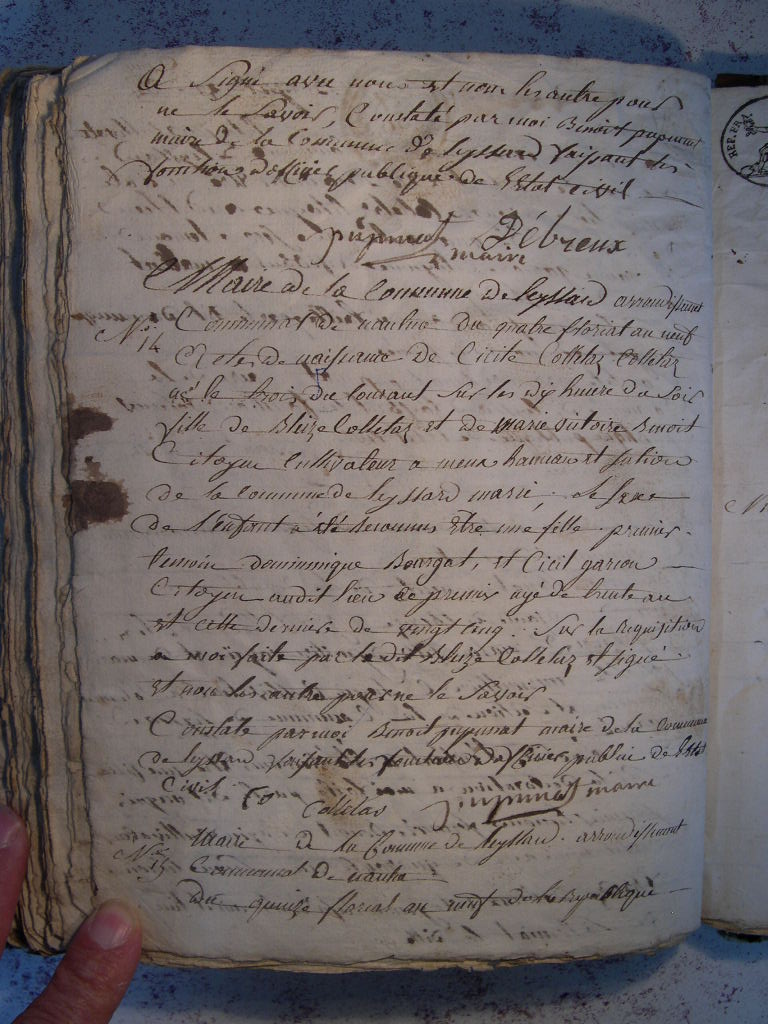 a signé avec nous et nom les autre pour
ne le Savoir, Constaté par moi Benoit pupunat
maire de la Commune de leyssard faissant les
fonctions d'officier publique de l'Etat civil
pupunat maire Débreux
Mairie de la Commune de leyssard arrondissement
No 14 Communal de nantua du quatre floréal au neuf
Acte de naissance de Cicile Colletaz Colletaz
né le trois du courant sur les dix heure du Soir
fille de Bleize Colletaz et de marie victoire Benoit
Citoyen Cultivateur a
de la commune de leyssard marié, le Sexe
de l'Enfant a été reconnus etre une fille premier
temoin dominique Bourgat, et Cicil garion
Citoyen audit lieu ce premier agé de trente an
et cette derniere de vingt cinq. Sur la requisition
a moi faite par le dit Bleize Colletaz et signé
et nom les autre pour ne le Savoir
Constaté par moi Benoit pupunat maire de la Commune
de leyssard faisant les fonctions d'officier public de l'Etat
Civil Colletas pupunat maire
Mairie de la Commune de leyssard arrondissement
No 15 Communal de nantua
du quinze floréal au neuf de la Republique
REP. FRA